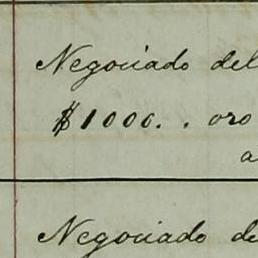 Negociado del
$1000. . oro
a
Negociado de